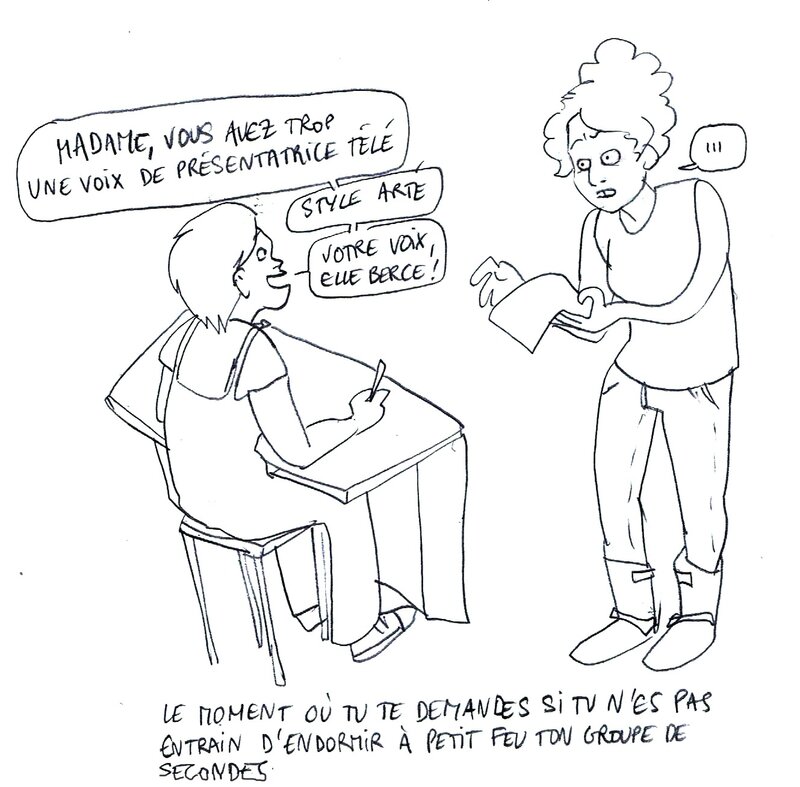 MADAME, VOUS AVEZ TROP
UNE VOIX DE PRÉSENTATRICE TÉLÉ
STYLE ARTÉ
VOTRE VOIX,
ELLE BERCE !
!!!
LE MOMENT OÙ TU TE DEMANDES SI TU N'ES PAS
ENTRAIN D'ENDORMIR À PETIT FEU TON GROUPE DE
SECONDES